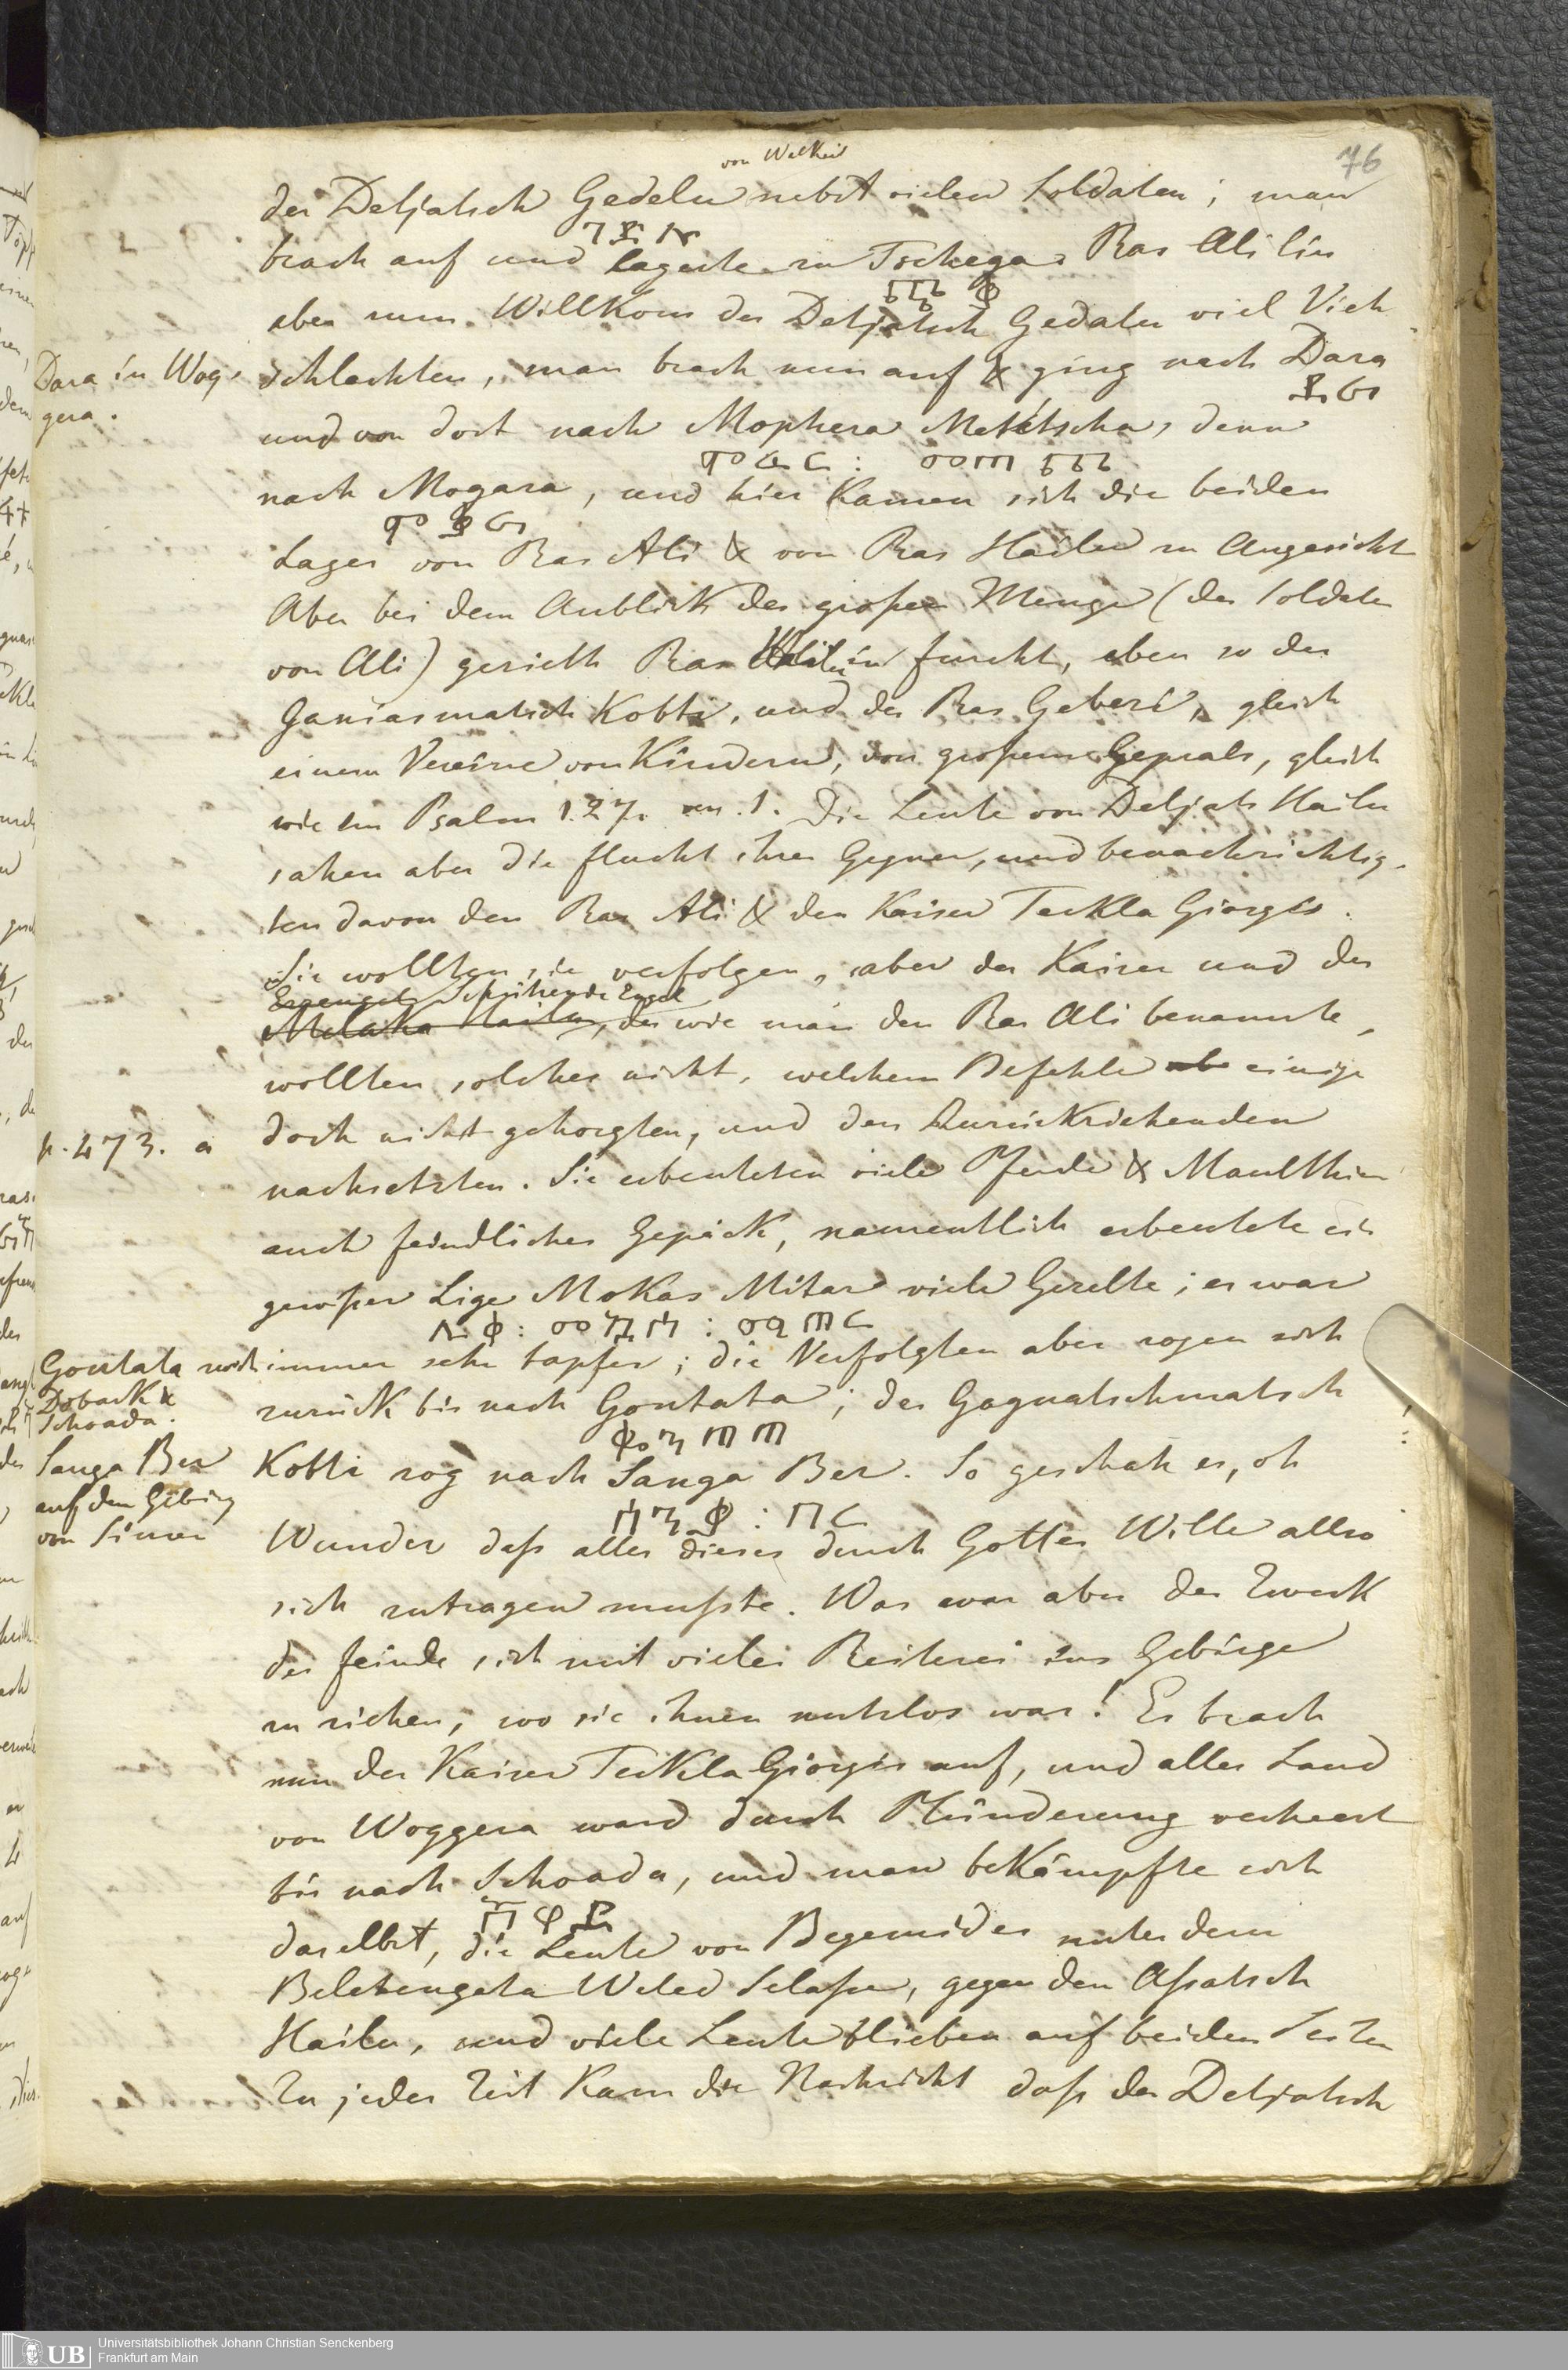 76
von Welkeit
der Detjatsch Gedelu nebst vielen Soldaten; man
ገደሉ
brach auf und lagerte zu Tschega. Ras Ali lies
aber zum Willkom der Detjatsch Gedalu viel Vieh
Dara in Wog-
gera.
schlachten, man brach nun auf & ging nach Dara
ደራ
und von dort nach Mophera Metétscha, denn
nach Mogara, und hier kamen sich die beiden
Lager von Ras Ali & von Ras Hailu zu Angesicht
Aber bei dem Anblick der großen Menge (der Soldaten
von Ali) gerieth Ras Hailu in Furcht, eben so der
Ganiasmatsch Kobti, und der Ras Geberi, gleich
einem Vereine von Kindern, von großem Geprals, gleich
wie im Psalm 127. 1. Die Leute von Detjats Hailu
sahen aber die Flucht ihrer Gegner, und benachrichtig-
ten davon den Ras Ali & den Kaiser Teckla Giorgis.
Sie wollten sie verfolgen, aber der Kaiser und der
Schützende Engel
Melaka Hailu, der wie man den Ras Ali benannte,
wollten solches nicht, welchem Befehle einige
p. 473. a
doch nicht gehorgten, und den Zurückziehenden
nachsetzten. Sie erbeuteten viele Pferde & Maulthiere
auch feindliches Gepäck, namentlich erbeutete ein
gewißer Lige Mokas Mitare viele Gezelte; er war
immer sehr tapfer; die Verfolgten aber zogen sich
Gontata nach
Doback &
Schoada.
zurück bis nach Gontata; der Gagnatschmatsch
Sanga Ber
auf dem Gebirg
von Simen
Kobti zog nach Sanga Ber. So geschah es, oh
Wunder daß alles dieses durch Gottes Wille allso
sich zutragen mußte. Was war aber der Zweck
der Feinde sich mit vieler Reiterei ins Gebirge
zu ziehen, wo sie ihnen nutzlos war! Es brach
nun der Kaiser Teckla Giorgis auf, und alles Land
von Woggera ward durch Plünderung verheert
bis nach Schoada, und man bekämpfte sich
daselbst, die Leute von Begemider unter dem
Beletengeta Weled Selaße, gegen den Aßatsch
Hailu, und viele Leute blieben auf beiden Seiten
Zu jeder Zeit kam die Nachricht daß der Detjatsch
UB
Universitätsbibliothek Johann Christian Senckenberg
Frankfurt am Main